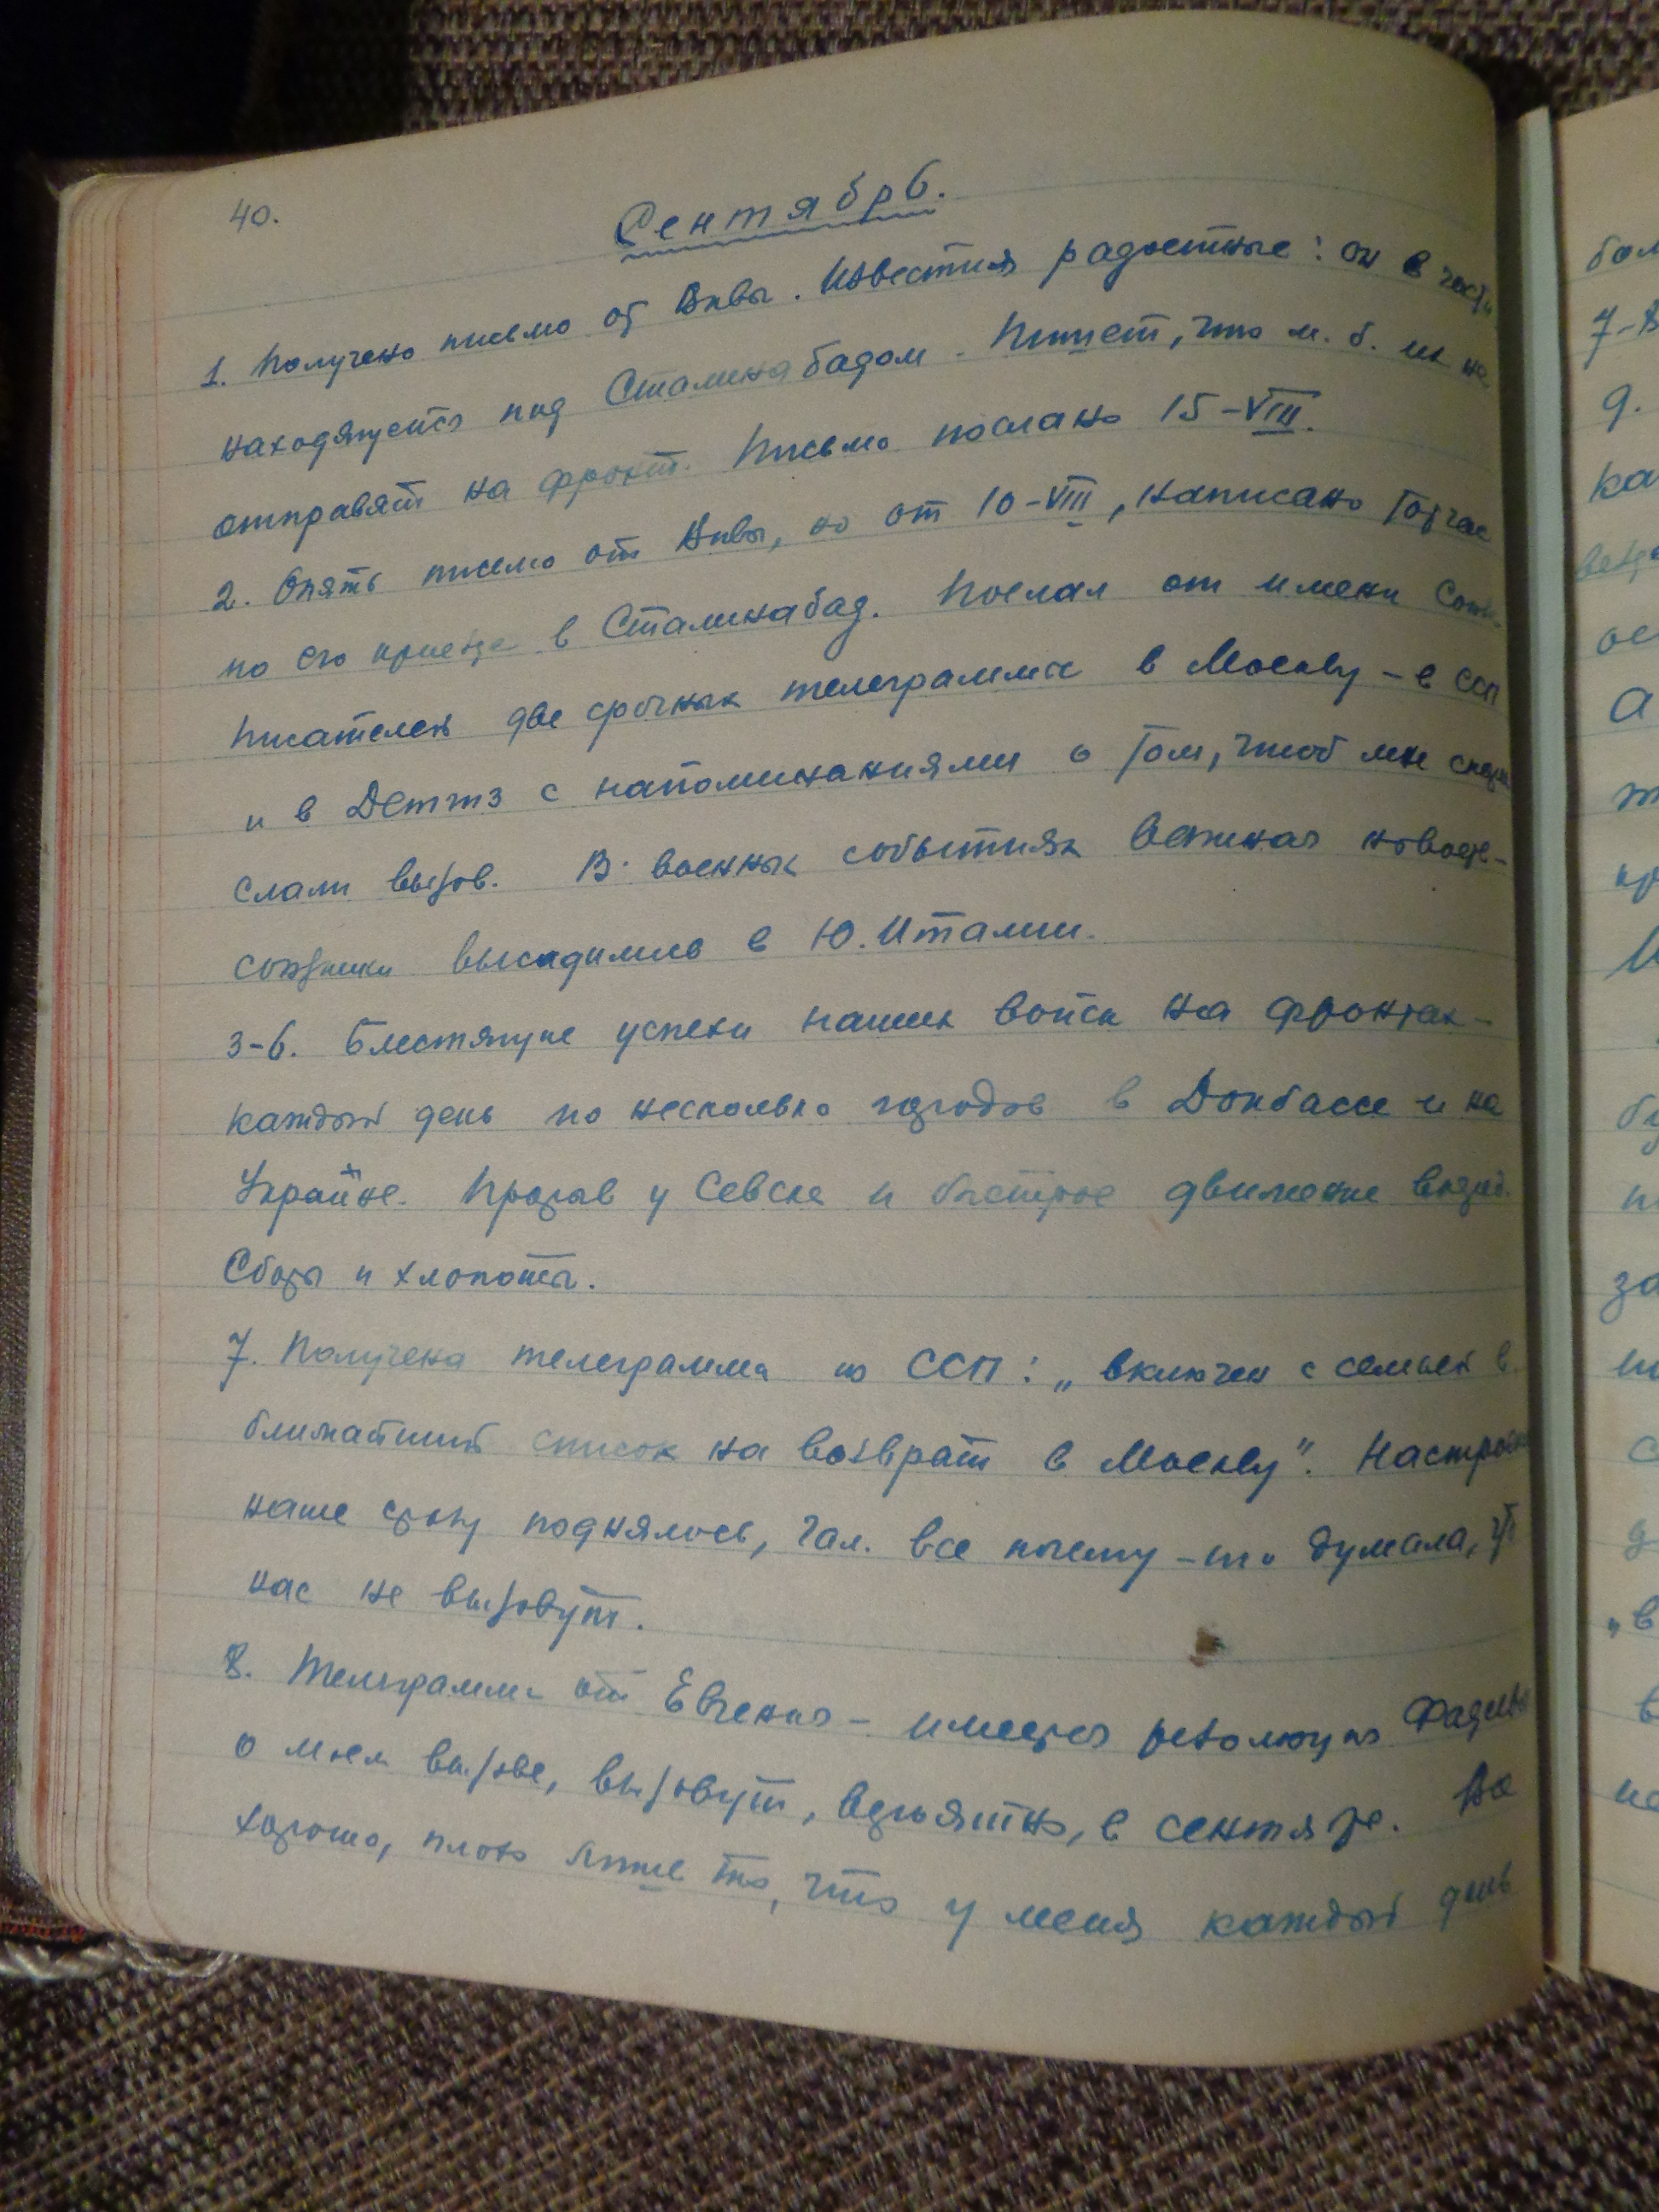 40.
Сентябрь.
1. Получено письмо от Вивы. Известия радостные: он в части,
находящейся под Сталинабадом. Пишет, что м. б. их не
отправят на фронт. Письмо послано 15-VIII.
2. Опять письмо от Вивы, но от 10-VIII, написано тотчас
по его приезде в Сталинабад. Послал от имени Союза
писателей две срочных телеграммы в Москву – в ССП
и в Детгиз с напоминаниями о том, чтоб мне скорее
слали вызов. В военных событиях великая новость –
союзники высадились в Ю. Италии.
3-6. Блестящие успехи наших войск на фронтах –
каждый день по несколько городов в Донбассе и на
Украйне. Прорыв у Севска и быстрое движение впер.
Сборы и хлопоты.
7. Получена телеграмма из ССП: „включен с семьей в
ближайший список на возврат в Москву". Настроение
наше сразу поднялось, Гал. все почему-то думала, чт
нас не вызовут.
8. Телеграмма от Евгения – имеется резолюция Фадеева
о моем вызове, вызовут, вероятно, в сентябре. Все
хорошо, плохо лишь то, что у меня каждый день
бол
7-8
9.
ка
ос
а
т
пр
И
бу
п
за
с
д
„в
в
не